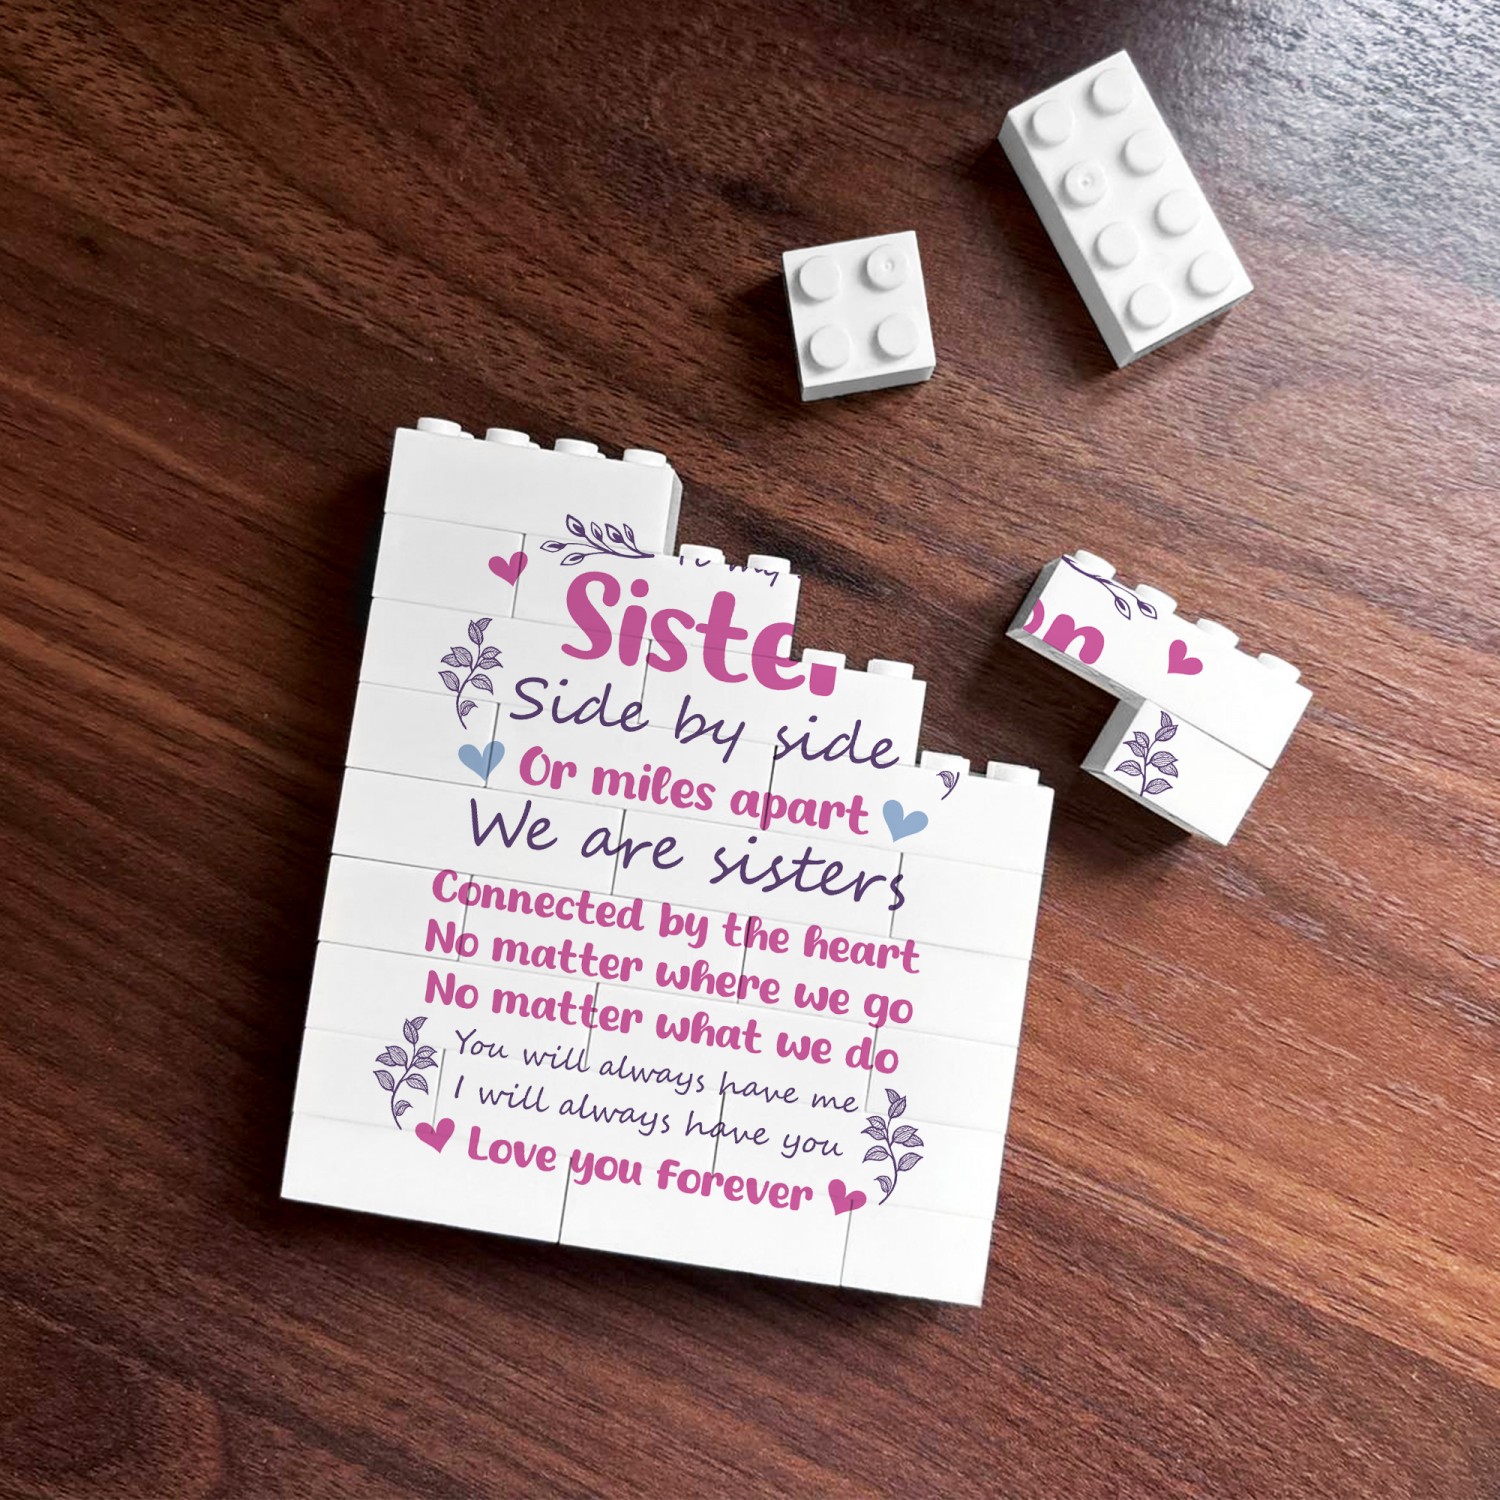 To my
Sister
Side by side
Or miles apart
We are sisters
Connected by the heart
No matter where we go
No matter what we do
You will always have me
I will always have you
Love you forever